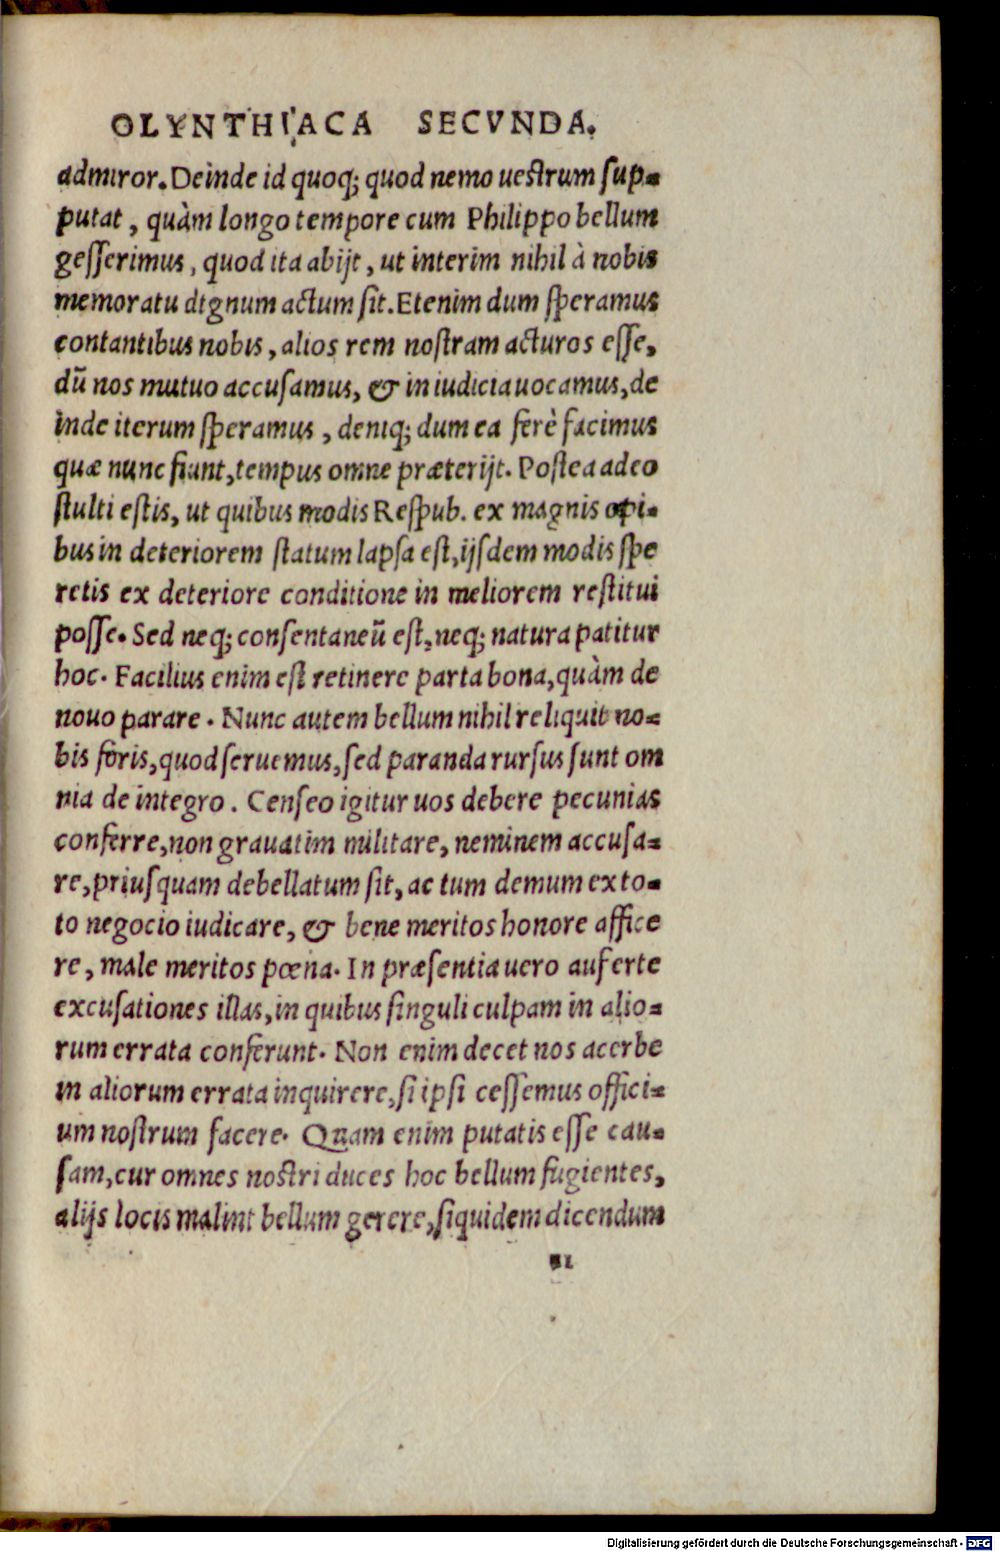 OLYNTHIACA SECVNDA.
admiror. Deinde id quoq; quod nemo uestrum sup-
putat, quàm longo tempore cum Philippo bellum
gesserimus, quod ita abijt, ut interim nihil à nobis
memoratu dignum actum sit. Etenim dum speramus
contantibus nobis, alios rem nostram acturos esse,
dū nos mutuo accusamus, & in iudicia uocamus, de
inde iterum speramus, deniq; dum ea ferè facimus
quæ nunc fiunt, tempus omne præterijt. Postea adeo
stulti estis, ut quibus modis Respub. ex magnis opi-
bus in deteriorem statum lapsa est, ijsdem modis spe
retis ex deteriore conditione in meliorem restitui
posse. Sed neq; consentaneū est, neq; natura patitur
hoc. Facilius enim est retinere parta bona, quàm de
nouo parare. Nunc autem bellum nihil reliquit no-
bis foris, quod seruemus, sed paranda rursus sunt om
nia de integro. Censeo igitur uos debere pecunias
conferre, non grauatim militare, neminem accusa-
re, priusquam debellatum sit, ac tum demum ex to-
to negocio iudicare, & bene meritos honore affice
re, male meritos pœna. In præsentia uero auferte
excusationes illas, in quibus singuli culpam in alio-
rum errata conferunt. Non enim decet nos acerbe
in aliorum errata inquirere, si ipsi cessemus offici-
um nostrum facere. Quam enim putatis esse cau-
sam, cur omnes nostri duces hoc bellum fugientes,
alijs locis malint bellum gerere, siquidem dicendum
Digitalisierung gefördert durch die Deutsche Forschungsgemeinschaft - DFG